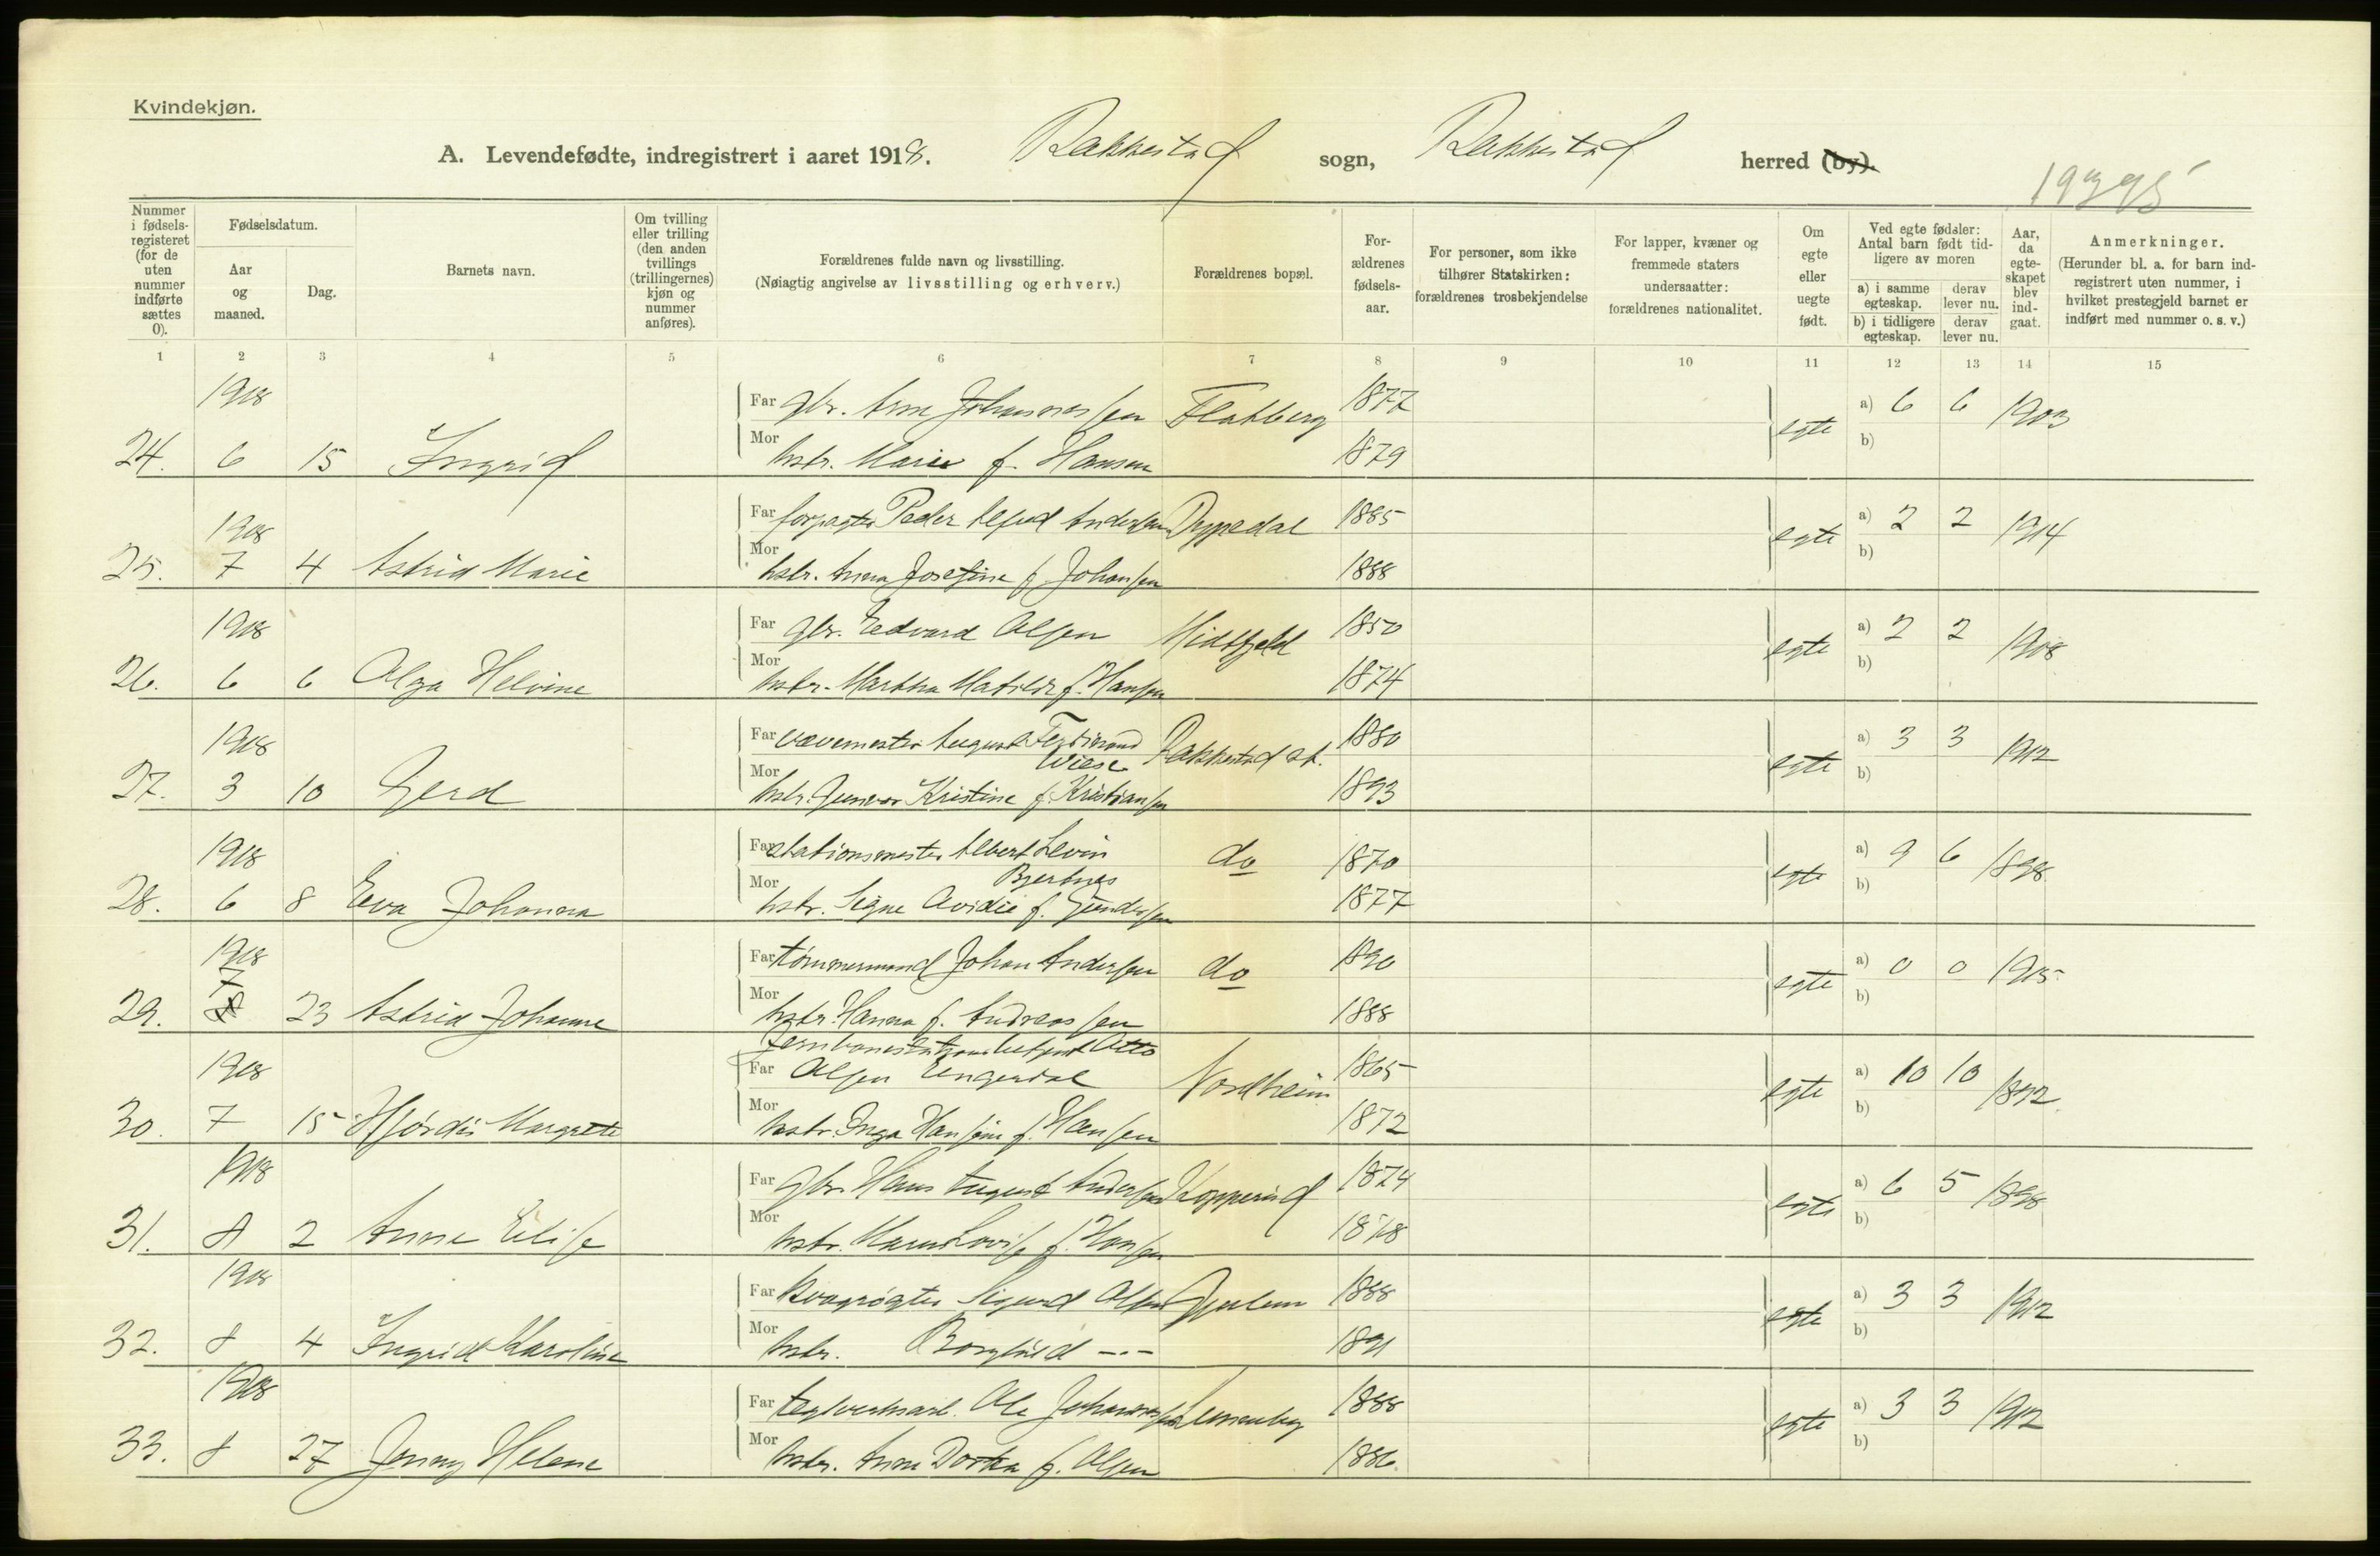 Kvindekjøn.
A. Levendefødte, indregistrert i aaret 1918. Rakkestad sogn, Rakkestad herred (by).
19395
Nummer i fødsels-registeret (for de uten nummer indførte sættes 0).
Fødselsdatum.
Aar og maaned.
Dag.
Barnets navn.
Om tvilling eller trilling (den anden tvillings (trillingernes) kjøn og nummer anføres).
Forældrenes fulde navn og livsstilling.
(Nøiagtig angivelse av livsstilling og erhverv.)
Forældrenes bopæl.
For-ældrenes fødsels-aar.
For personer, som ikke tilhører Statskirken: forældrenes trosbekjendelse
For lapper, kvæner og fremmede staters undersaatter: forældrenes nationalitet.
Om egte eller uegte født.
Ved egte fødsler: Antal barn født tid-ligere av moren
a) i samme egteskap. derav lever nu.
b) i tidligere egteskap. derav lever nu.
Aar, da egte-skapet blev ind-gaat.
Anmerkninger.
(Herunder bl. a. for barn ind-registrert uten nummer, i hvilket prestegjeld barnet er indført med nummer o. s. v.)
1 2 3 4 5 6 7 8 9 10 11 12 13 14 15
1918 Far gbr. Arne Johannessen Flatberg 1877 a) 6 6 1903
24. 6 15 Ingrid Mor hstr. Marie f. Hansen 1879 egte b)
1918 Far forpagter Peder Alfred Andersen Dyppedal 1885 a) 2 2 1914
25. 7 4 Astrid Marie Mor hstr. Anna Josefine f. Johansen 1888 egte b)
1918 Far gbr. Edvard Olsen Midtfjeld 1850 a) 2 2 1908
26. 6 6 Olga Helvine Mor hstr. Martha Matilde f. Hansen 1874 egte b)
1918 Far vævemester August Ferdinand Wiese Rakkestad st. 1880 a) 3 3 1912
27. 3 10 Gerd Mor hstr. Gunvor Kristine f. Kristiansen 1893 egte b)
1918 Far stationsmester Albert Levin Bjertnes do 1870 a) 9 6 1898
28. 6 8 Eva Johanna Mor hstr. Signe Ovidie f. Gundersen 1877 egte b)
1918 Far tømmermand Johan Andersen do 1890 a) 0 0 1915
29. 7 23 Astrid Johanne Mor hstr. Hanna f. Andreassen 1888 egte b)
1918 Far Jernbanestationsbetjent Otto Olsen Engerdal Nordheim 1865 a) 10 10 1892
30. 7 15 Hjørdis Margrette Mor hstr. Inga Hansine f. Hansen 1872 egte b)
1918 Far gbr. Hans August Andersen Kopperud 1874 a) 6 5 1898
31. 8 2 Anne Elise Mor hstr. Karen Lovise f. Hansen 1878 egte b)
1918 Far Kvægrøgter Sigurd Olsen Gjulem 1888 a) 3 3 1912
32. 8 4 Ingrid Karoline Mor hstr. Borghild -"- 1891 egte b)
1918 Far teglverksarb. Ole Johannessen 1888 a) 3 3 1912
33. 8 27 Jenny Helene Mor hstr. Anna Dortea f. Olsen 1886 egte b)